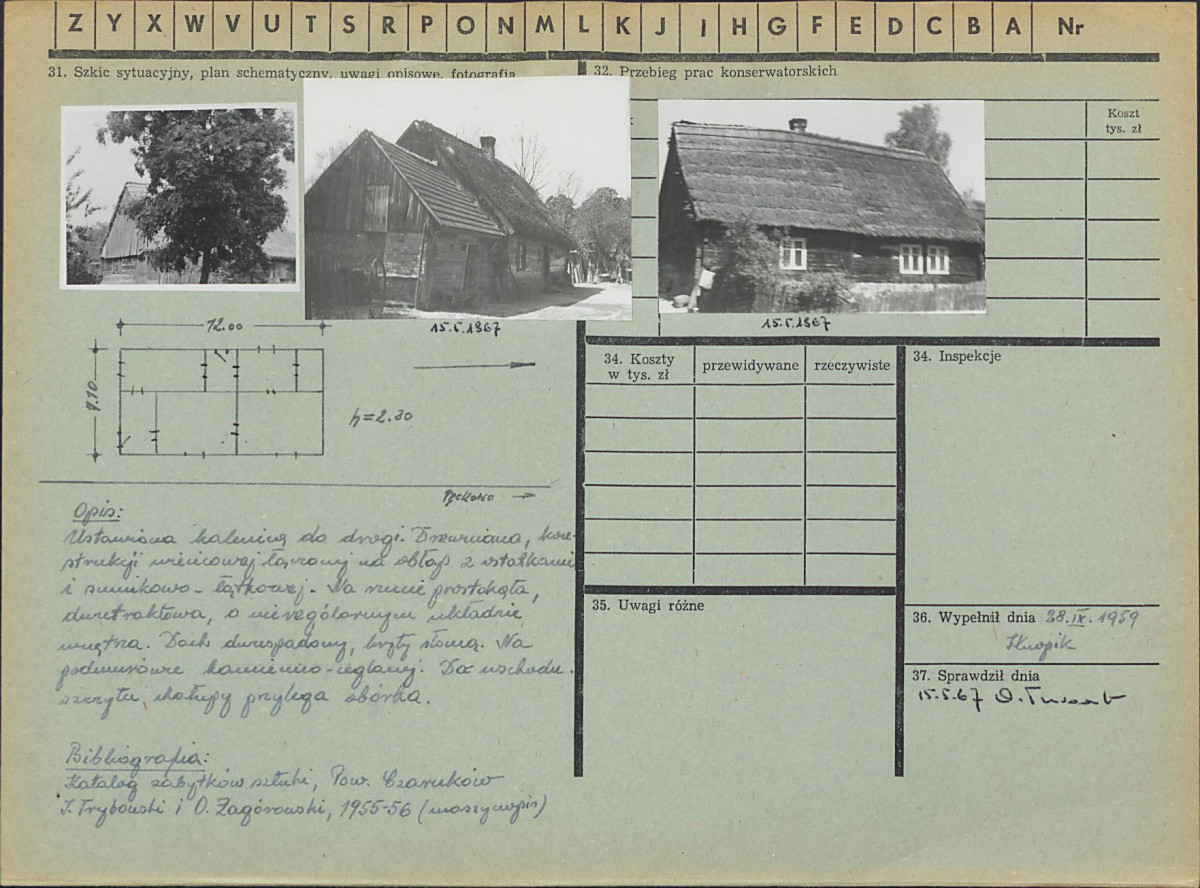 Z Y X W V U T S R P O N M L K J I H G F E D C B A Nr
31. Szkic sytuacyjny, plan schematyczny, uwagi opisowe, fotografia
15.5.1967
12.00
9.10
h=2.30
Opis:
Ustawiona kalenicą do drogi. Drewniana, kon-
strukcji wieńcowej łączonej na obłap z ostatkami
i sumikowo-łątkowej. Na rzucie prostokąta,
dwutraktowa, o nierególarnym układzie
wnętrza. Dach dwuspadowy, kryty słomą. Na
podmurówce kamienno-ceglanej. Do wschodu.
szczytu chałupy przylega obórka.
Bibliografia:
Katalog zabytków sztuki, Pow. Czarnków
I. Trybowski i O. Zagórowski, 1955-56 (maszynopis)
32. Przebieg prac konserwatorskich
Koszt
tys. zł
15.5.1967
34. Koszty
w tys. zł
przewidywane
rzeczywiste
34. Inspekcje
35. Uwagi różne
36. Wypełnił dnia 28.IX.1959
37. Sprawdził dnia
15.5.67